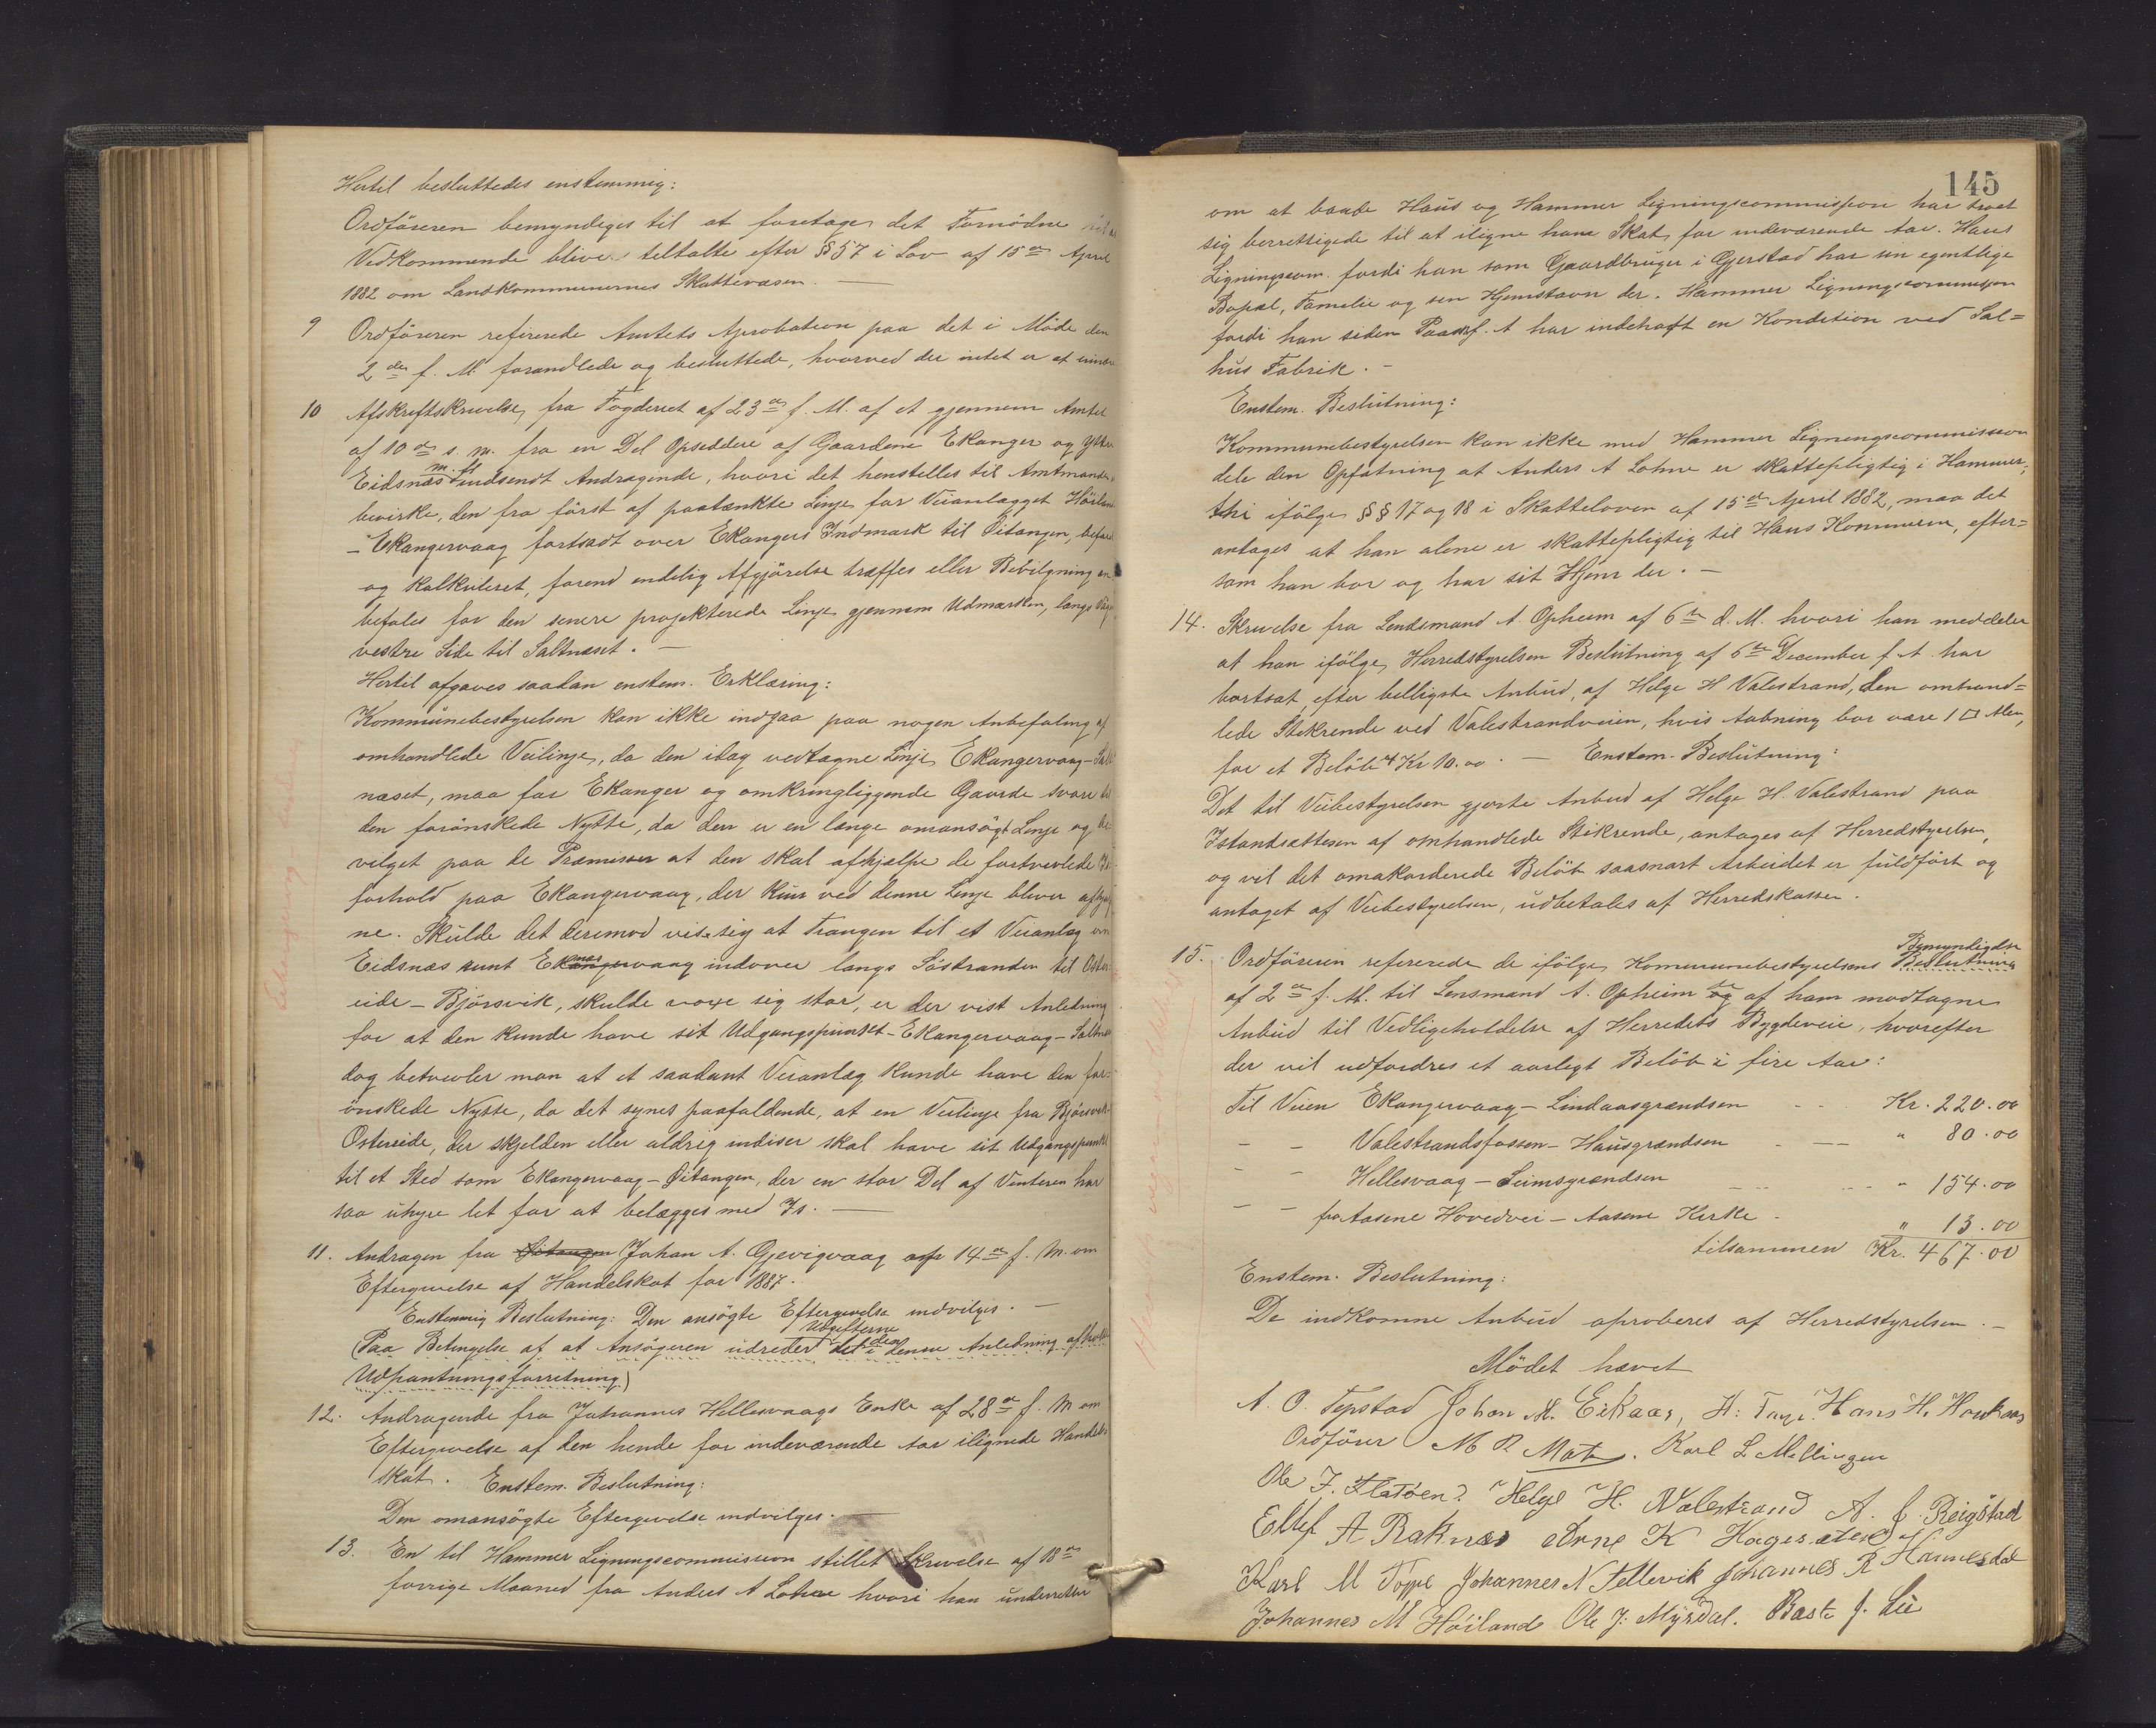 Hertil besluttedes enstemmig:
Ordföreren bemyndiges til at foretage det Fornödne
Vedkommende bliver tiltalte efter §57 i Lov af 15de April
1882 om Landkommunernes Skattevæsen. —
9 Ordföreren refererede Amtets Aprobation paa det i Möde den
2den f. M. forandlede og besluttede, hvorved der intet er at erindre
10 Afskriftskrivelse, fra Fogderiet af 23de f. M. af et gjennem Amtet
af 10de s. m. fra en Del Opsiddere af Gaardene Ekanger og Ytre
Eidsnæs m. fl. indsendt Andragende, hvori det henstilles til Amtmanden
bevirke, den fra först af paatænkte Linje for Veianlægget
– Ekangervaag fortsadt over Ekangers Indmark til Öitangen, befaret
og kalkuleret, forend endelig Afgjörelse træffes eller Bevilgning an
befales for den senere projekterede Linje gjennem Udmarken, langs
vestre Side til Saltnæset. —
Hertil afgaves saadan enstem. Erklæring:
Kommunebestyrelsen kan ikke indgaa paa nogen Anbefaling af
omhandlede Veilinje, da den idag vedtagne Linje Ekangervaag – Salt
næset, maa for Ekanger og omkringliggende Gaarde svare til
den forönskede Nytte, da den er en længe omansögt Linje og be
vilget paa de Præmisser at den skal afhjælpe de fortvivlede Is
forhold paa Ekangervaag, der kun ved denne Linje bliver
ne. Skulde det derimod vise sig at Trangen til et Veianlæg om
Eidsnæs rundt Ekangervaag indover langs Söstranden til Oster
eide – Bjørsvik, skulde voxe sig stor, er der vist Anledning
for at den kunde have sit Udgangspunkt – Ekangervaag – Saltnæs
dog betvivler man at et saadant Veianlæg kunde have den for-
önskede Nytte, da det synes paafaldende, at en Veilinje fra Bjørsvik
Ostereide, der skjelden eller aldrig indiser skal have sit Udgangspunkt
til et Sted som Ekangervaag – Öitangen, der en stor Del af Vinteren har
saa uhyre let for at belægges med Is. —
11. Andragen fra Johan A. Gjevigvaag af 14de f. M. om
Eftergivelse af Handelskat for 1887.
Enstemmig Beslutning: Den ansögte Eftergivelse indvilges. —
Udgifterne
(Paa Betingelse af at Ansögeren udreder det i den denne Anledning afholdte
Udpantningsforretning)
12. Andragende fra Johannes Hellesvaags Enke af 28de f. M om
Eftergivelse af den hende for indeværende Aar ilignede Handels
skat. Enstem. Beslutning:
Den omansögte Eftergivelse indvilges. —
13. En til Hammer Ligningscommission stillet Skrivelse af 18de
forrige Maaned fra Anders A Lohne hvori han underretter
145
om at baade Haus og Hammer Ligningscommission har troet
sig berrettigede til at iligne ham Skat for indeværende Aar. Haus
Ligningscom. fordi han som Gaardbruger i Gjerstad har sin egentlige
Bopæl, Familie og sin Hjemstavn der. Hammer Ligningscommission
fordi han siden Paaske f. A har indehaft en Kondition ved Sal=
hus Fabrik. –
Enstem. Beslutning:
Kommunebestyrelsen kan ikke med Hammer Ligningscommission
dele den Opfatning at Anders A Lohne er skattepligtig i Hammer;
thi ifölge §§ 17 og 18 i Skatteloven af 15de April 1882, maa det
antages at han alene er skattepligtig til Haus Kommune, efter=
som han bor og har sit Hjem der. –
14. Skrivelse fra Lendsmand A. Opheim af 6te d. M. hvori han meddeler
at han ifölge Herredstyrelsen Beslutning af 6te December f. A. har
bortsat, efter billigste Anbud, af Helge H Valestrand, den omhand=
lede Stikrende ved Valestrandveien, hvis Aabning bör være 1 □ Alen,
for et Belöb af Kr 10.00. — Enstem. Beslutning:
Det til Veibestyrelsen gjorte Anbud af Helge H. Valestrand paa
Istandsættesen af omhandlede Stikrende, antages af Herredstyrelsen,
og vil det omakorderede Belöb saasnart Arbeidet er fuldfört og
antaget af Veibestyrelsen, udbetales af Herredskassen.
Bemyndigelse
15. Ordföreren refererede de ifölge Kommunebestyrelsens Beslutning
af 2den f. M. til Lensmand A. Opheim og af ham modtagne
Anbud til Vedligeholdelse af Herredets Bygdeveie, hvorefter
der vil udfordres et aarligt Belöb i fire Aar:
Til Veien Ekangervaag – Lindaasgrændsen Kr. 220.00
– – Valestrandsfossen – Hausgrændsen — " 80.00
– – Hellesvaag – Seimsgrændsen " 154.00
– – fra Aasene Hovedvei – Aasene Kirke – " 13.00
tilsammen Kr. 467.00
Enstem. Beslutning:
De indkomne Anbud aproberes af Herredstyrelsen. –
Mödet hævet
A. O. Tepstad Johan M. Eikaas, H: Hans H. Haukaas
Ordförer M R Mat. Karl L Mellingen
Ole J. Flatöen? Helge H. Valestrand A. J. Reigstad
Ellef A Raknæs Arne K Hagesæter
Karl M Toppe Johannes N Tellevik Johannes R Hannesdal
Johannes M Höiland Ole J: Myrdal. Baste J. Lie